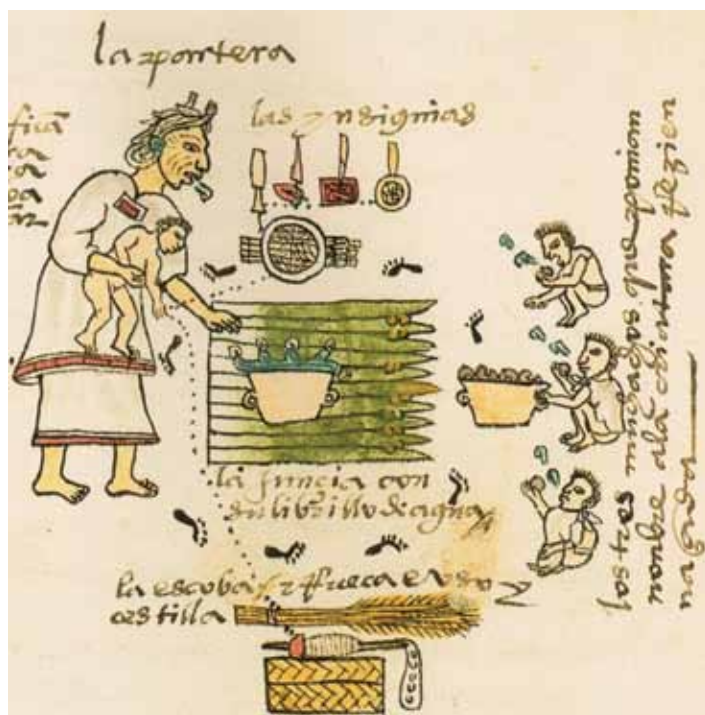 la partera
las ynsignias
la juncia con
su librillo de agua
la escoba y rrueca e uso y
cestilla
los tres muchachos que
nombre a la criatura rrezien